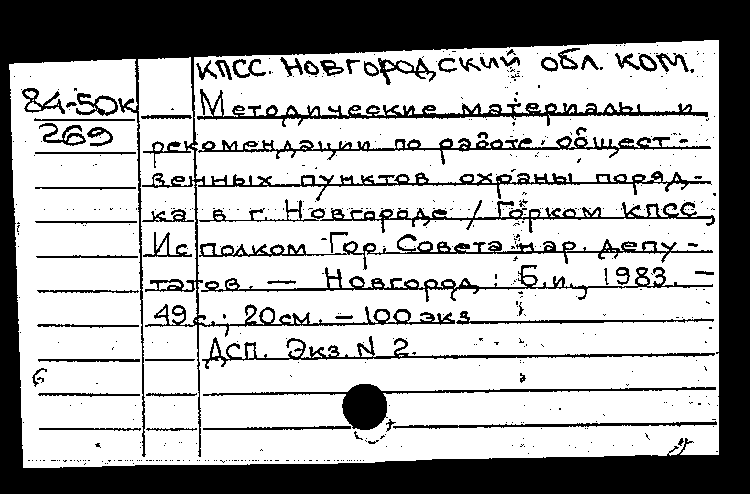 КПСС. Новгородский обл. ком.
84-50к Методические материалы и
269 рекомендации по работе общест-
венных пунктов охраны поряд-
ка в г. Новгороде / Горком КПСС,
Исполком Гор. Совета нар. депу-
татов. — Новгород : Б.и., 1983. —
49 с.; 20 см. — 100 экз
ДСП. Экз. N 2.
6